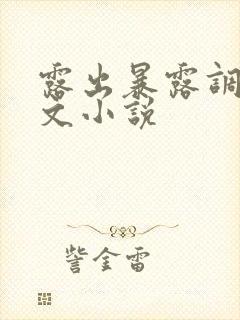 露出暴露調
文小说
訾金雷